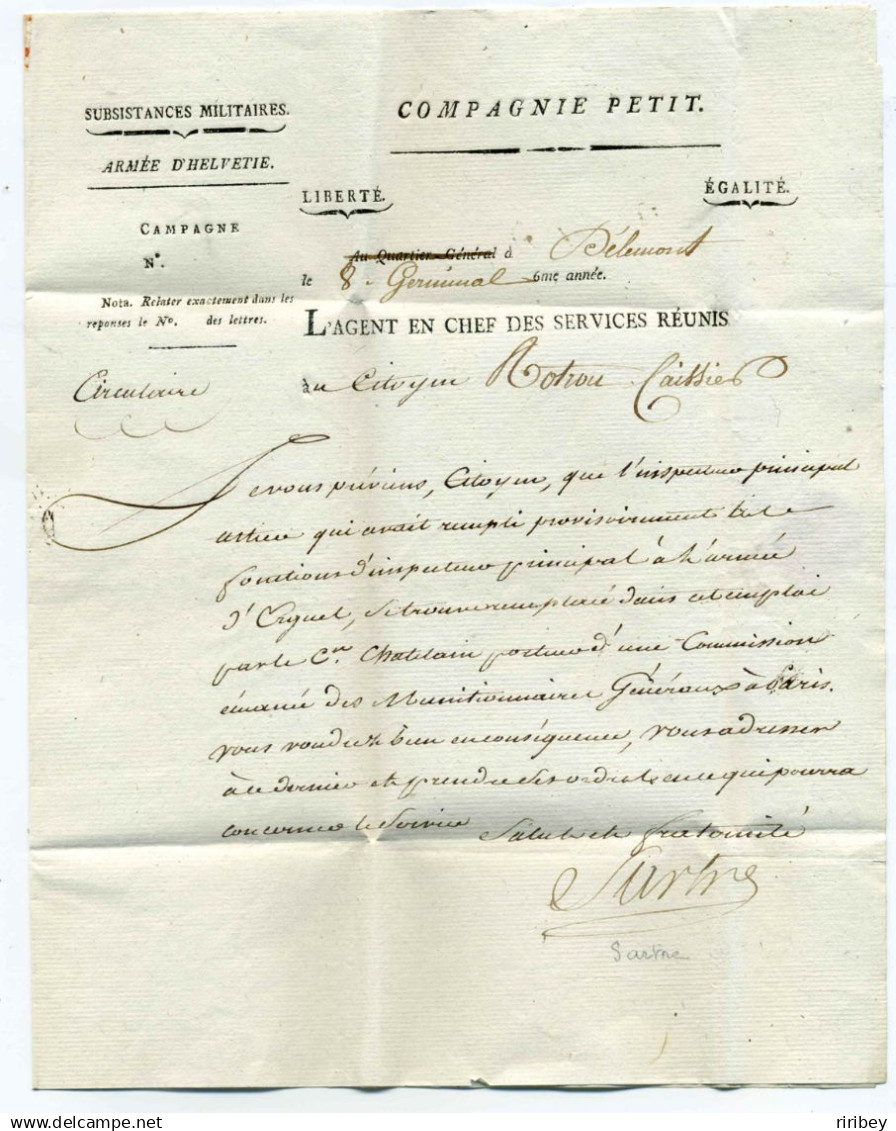 SUBSISTANCES MILITAIRES.
ARMÉE D'HELVETIE.
CAMPAGNE
N°.
Nota. Relater exactement dans les
reponses le No. des lettres.
Circulaire
COMPAGNIE PETIT.
LIBERTÉ.
ÉGALITÉ.
Au Quartier-Général à Délemont
le 8. Germinal 6me année.
L'AGENT EN CHEF DES SERVICES RÉUNIS
au Citoyen Rotrou Caissier
Je vous préviens, Citoyen, que l'inspecteur principal
qui avait rempli provisoirement
fonctions d'inspecteur principal à l'armée
d'Erguel, se trouve remplacé dans cet emploi
par le Cen. Chatelain porteur d'une Commission
émané des Munitionnaires Généraux à Paris.
vous voudrez bien en conséquence, vous adresser
à ce dernier et prendre ses ordres en ce qui pourra
concerner le Service Salut et fraternité
Sartre
Sartre
riribey